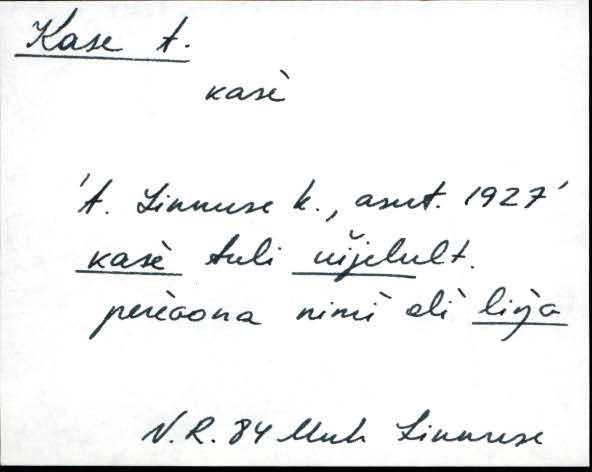 Kase t.
kasè
't. Linnuse k., asut. 1927'
kasè tuli uijelult.
perèaona nimì olì lijja
N.R. 84 Muh Linnuse